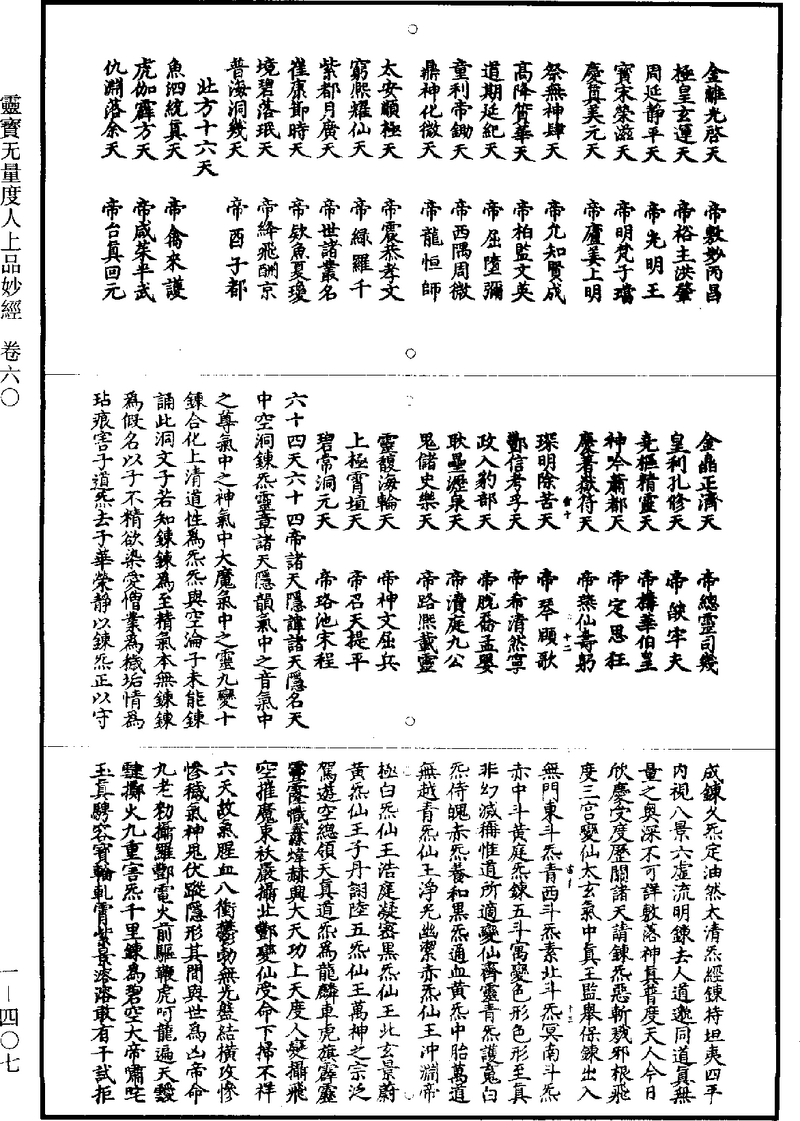 靈寶无量度人上品妙經 卷六〇
一—四〇七
金離光啓天 帝敷妙丙昌
極皇玄運天 帝裕主洪肇
周延静平天 帝光明王
寳宋榮滋天 帝明梵子璫
慶真美元天 帝廬姜上明
祭無神肆天 帝允知賢成
高降筲華天 帝柏監文英
道期延紀天 帝屈墮彌
童利帝鋤天 帝西隅周微
鼎神化微天 帝龍恒師
太安順極天 帝震恭孝文
窮熈耀仙天 帝綠羅千
紫都月廣天 帝世諸叢名
崔康節時天 帝欽魚夏瓊
境碧落珉天 帝絳飛酬京
普海洞幾天 帝酉子都
北方十六天
魚泗統真天 帝禽來護
虎伽霹方天 帝咸茱平武
仇淵落余天 帝台真回元
金晶正濟天 帝總靈司幾
皇利孔修天 帝皎牢夫
竞樞精靈天 帝搆華伯皇
神吟蕭都天 帝定思狂
慶著嶽符天 帝藥仙壽躬
琛明除苦天 帝琴頤歌
酆信考孚天 帝希清然寧
政入豹部天 帝脫喬孟嬰
耿壘瀝泉天 帝瀆庭九公
思儲史樂天 帝路熈戴靈
靈馥海輪天 帝神文屈兵
上極霄垣天 帝召天提平
碧常洞元天 帝珞池宋程
六十四天六十四帝諸天隱諱諸天隱名天
中空洞鍊炁靈章諸天隱韻氣中之音氣中
之尊氣中之神氣中大魔氣中之靈九變十
鍊合化上清道性為炁炁與空淪子未能鍊
誦此洞文子若知鍊鍊為至精氣本無鍊鍊
為假名以子不精欲染愛憎業為穢垢情為
玷痕害子道炁去子華榮静以鍊炁正以守
成鍊久炁定油然太清炁經鍊持坦夷四平
内視八景六虛流明鍊去人道邈同道真無
量之奥深不可詳敷落神真普度天人今日
欣慶受度歷關諸天請鍊炁惡斬戮邪根飛
度三宫變仙太玄氣中真王監舉保鍊出入
無門東斗炁青西斗炁素北斗炁冥南斗炁
赤中斗黄庭炁鍊五斗寓變色形色形至真
非幻滅稱惟道所適變仙齊靈青炁護䰟白
炁侍魄赤炁養和黑炁通血黄炁中胎萬道
無越青炁仙王淨光幽潔赤炁仙王冲淵帝
極白炁仙王浩庭凝寂黑炁仙王北玄景蔚
黄炁仙王子丹詡陸五炁仙王萬神之宗泛
駕遊空總領天真道炁為龍麟車虎旗霹靂
靈霆幟纛煒赫興大天功上天度人變攝飛
空摧魔束祅嚴攝北酆變仙受命下掃不祥
六天故氣腥血八衝鬱勃無光盤結横攻慘
慘穢氣神鬼伏蹤隱形其間與世為凶帝命
九老勑攝羅酆電火前驅鞭虎叱龍遍天毀
擲火九重害炁千里鍊為碧空大帝嘯咤
玉真騁容寳輪軋霄紫景溶溶敢有干試拒